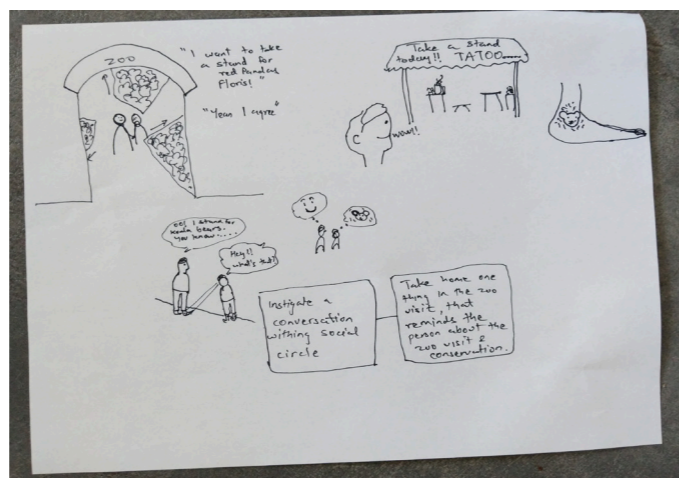 ZOO
"I want to take
a stand for
red Pandas
Floris!"
"Yeah I agree"
Take a stand
today!! TATOO......
wow!!
oo! I stand for
koala bears.
You know.....
Hey!!
what's that?
Instigate a
conversation
withing social
circle
Take home one
thing in the zoo
visit, that
reminds the
person about the
zoo visit &
conservation.